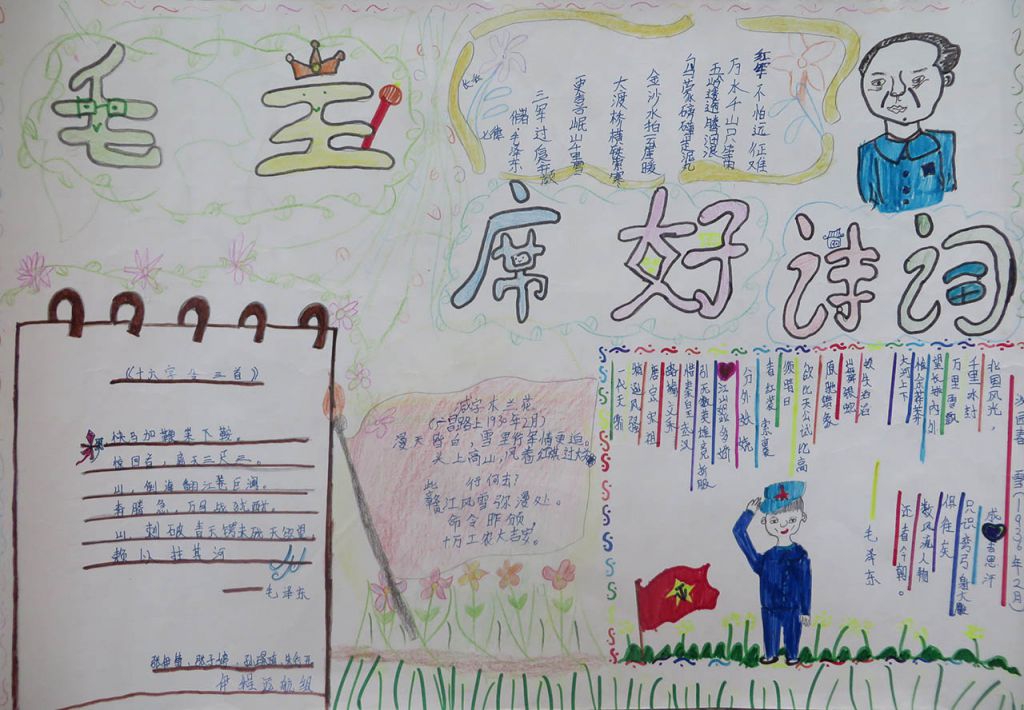 毛主
席好诗词
红军不怕远征难
万水千山只等闲
五岭逶迤腾细浪
乌蒙磅礴走泥丸
金沙水拍云崖暖
大渡桥横铁索寒
更喜岷山千里雪
三军过后尽开颜
毛泽东
长征
七律
《十六字令三首》
快马加鞭未下鞍。
惊回首，离天三尺三。
山，倒海翻江卷巨澜。
奔腾急，万马战犹酣。
山，刺破青天锷未残天欲堕
赖以拄其河
毛泽东
伊程远航组
减字木兰花
(一宫路上1930年2月)
漫天皆白，雪里行军情更迫。
头上高山，风卷红旗过大关。
此行何去？
赣江风雪弥漫处。
命令昨颁，
十万工农大吉安。
雪(1936年2月)
北国风光，
千里冰封
万里雪飘
望长城内外
惟余莽莽
大河上下
顿失滔滔
山舞银蛇
原驰蜡象
欲比天公试比高
须晴日
看红装素裹
分外妖娆
江山如此多娇
引无数英雄竞折腰
惜秦皇汉武
略输文采
唐宗宋祖
稍逊风骚
一代天骄
成吉思汗
只识弯弓射大雕
俱往矣
数风流人物
还看今朝。
毛泽东